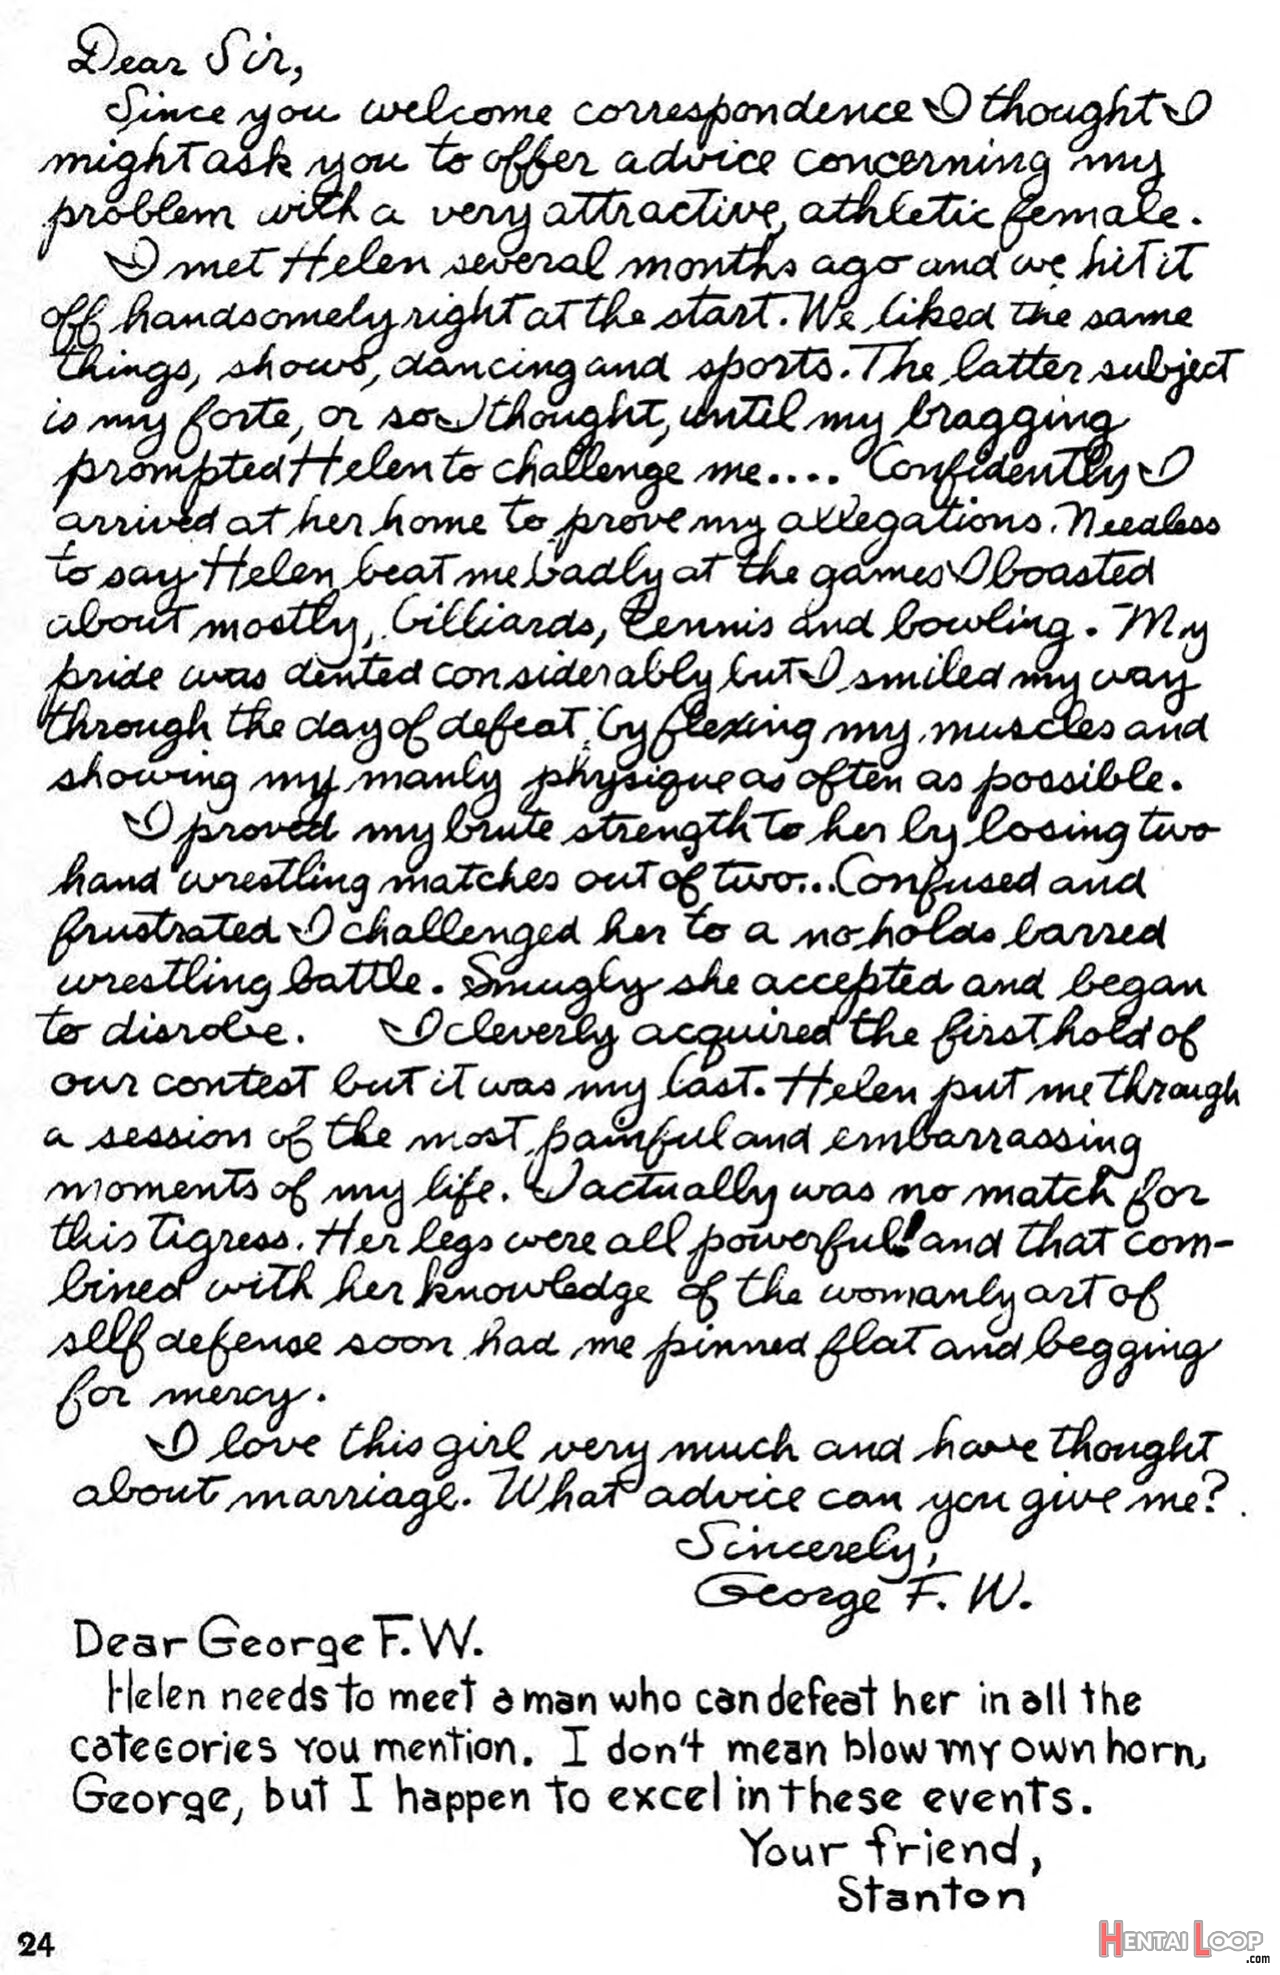 Dear Sir,
Since you welcome correspondence I thought I
might ask you to offer advice concerning my
problem with a very attractive, athletic female.
I met Helen several months ago and we hit it
off handsomely right at the start. We liked the same
things, shows, dancing and sports. The latter subject
is my forte, or so I thought, until my bragging
prompted Helen to challenge me.... Confidently I
arrived at her home to prove my allegations. Needless
to say Helen beat me badly at the games I boasted
about mostly, billiards, tennis and bowling. My
pride was dented considerably but I smiled my way
through the day of defeat by flexing my muscles and
showing my manly physique as often as possible.
I proved my brute strength to her by losing two
hand wrestling matches out of two... Confused and
frustrated I challenged her to a no holds barred
wrestling battle. Smugly she accepted and began
to disrobe. I cleverly acquired the first hold of
our contest but it was my last. Helen put me through
a session of the most painful and embarrassing
moments of my life. I actually was no match for
this tigress. Her legs were all powerful! and that com-
bined with her knowledge of the womanly art of
self defense soon had me pinned flat and begging
for mercy.
I love this girl very much and have thought
about marriage. What advice can you give me?
Sincerely,
George F. W.
Dear George F.W.
Helen needs to meet a man who can defeat her in all the
categories you mention. I don't mean blow my own horn,
George, but I happen to excel in these events.
Your friend,
Stanton
24
HENTAI LOOP
.com